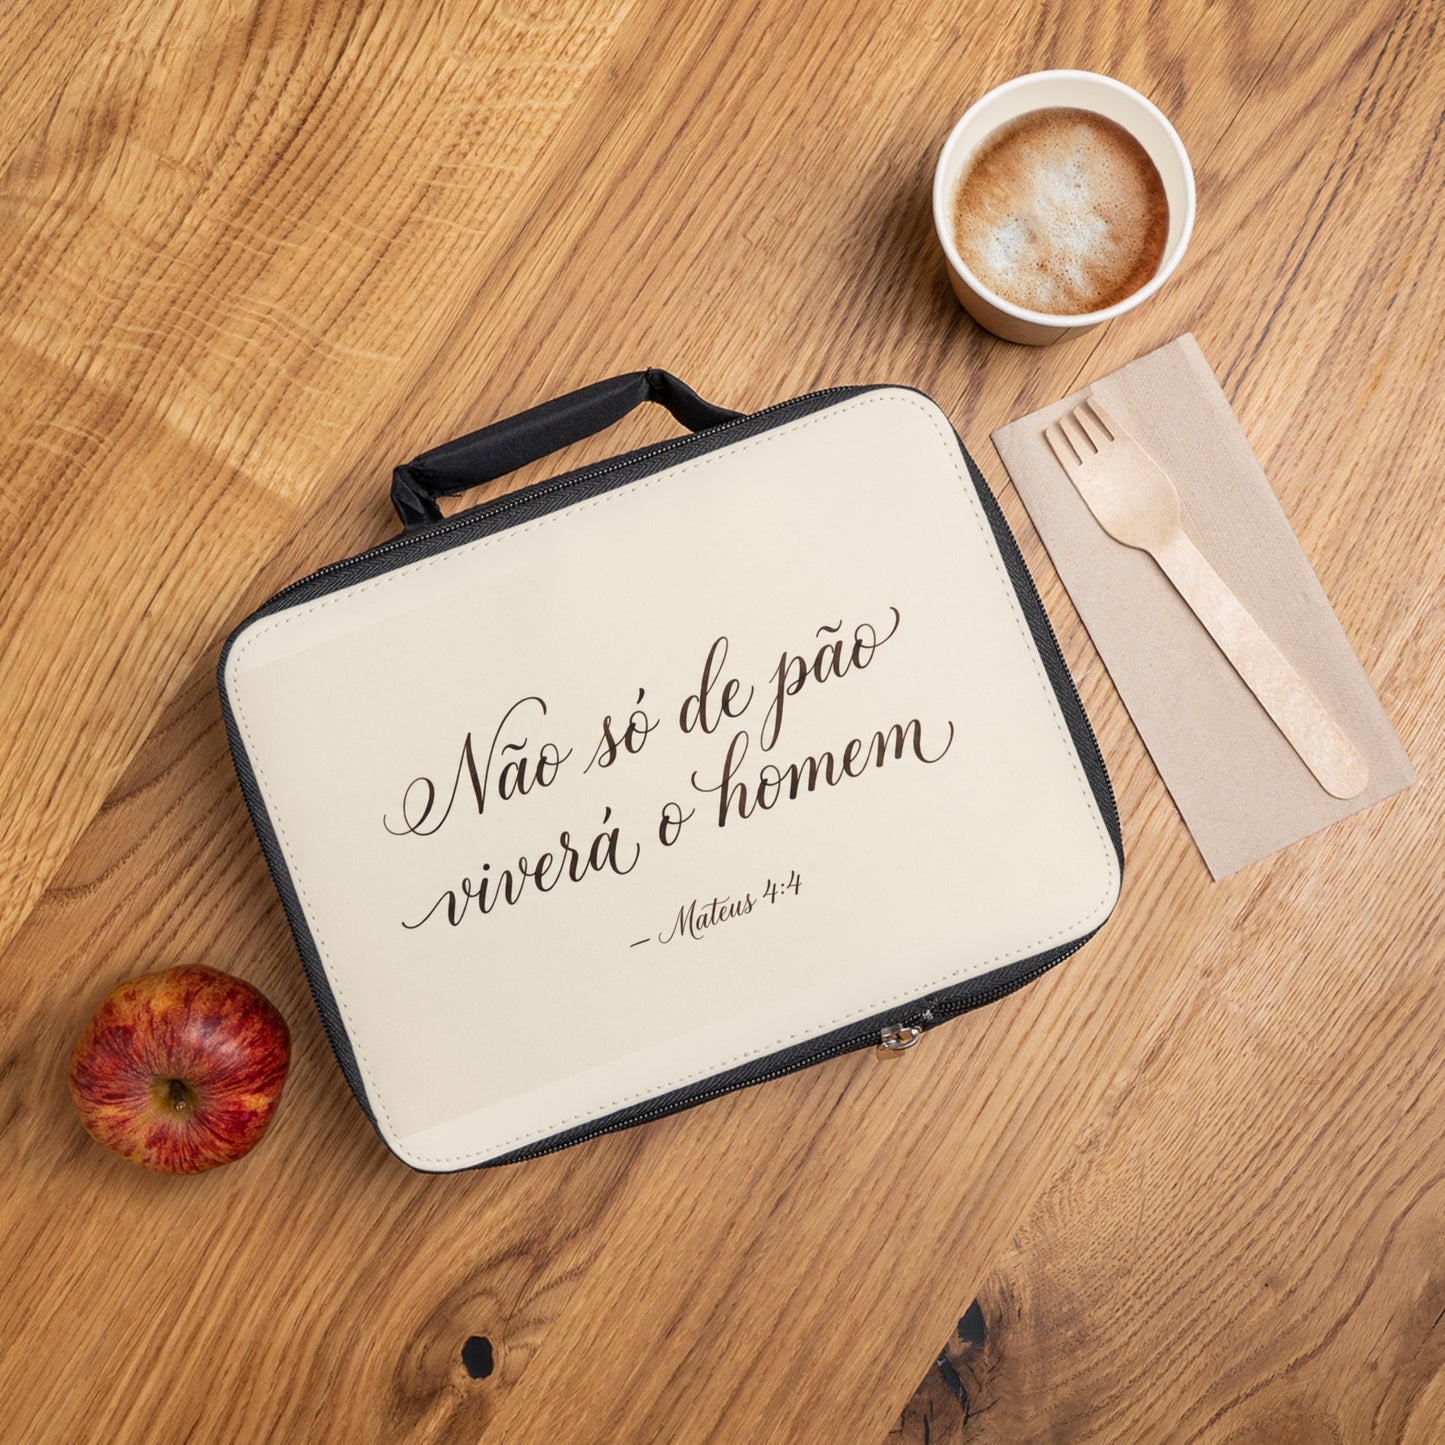 Não só de pão
viverá o homem
– Mateus 4:4